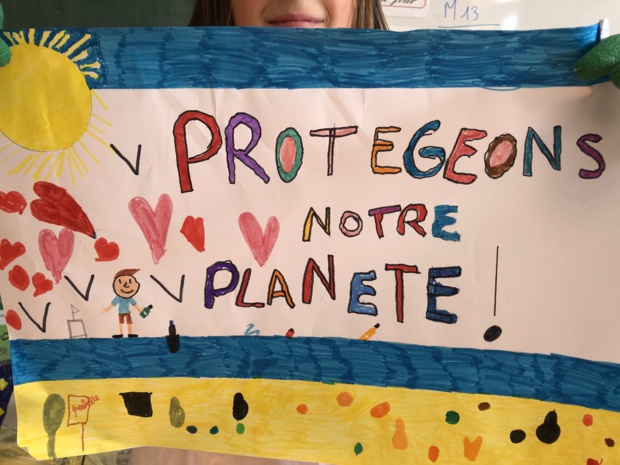 M 13
PROTEGEONS
NOTRE
PLANETE !